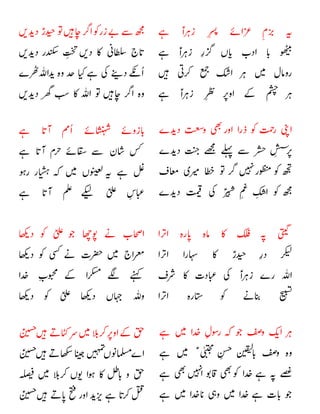 یہ بزم عزائے پسرِ زہراؑ ہے
بیٹھو با ادب یاں گزرِ زہراؑ ہے
رومال میں ہر اشک جمع کرتی ہیں
ہر چشم کے اوپر نظرِ زہراؑ ہے
مجھ سے بے زر کو اگر چاہیں تو حیدرؑ دیدیں
تاج سلطانی کا دیں تختِ سکندر دیدیں
اُنکے دینے کی ہے کیا حد وہ یداللہ ٹھرے
وہ اگر چاہیں تو اللہ کا سب گھر دیدیں
اپنی رحمت کو ذرا اور بھی وسعت دیدے
پرسشِ حشر سے پہلے مجھے جنت دیدے
تجھ کو منظور نہیں گر تو خطا میری معاف
مجھ کو اشکِ غمِ شبیرؑ کی قیمت دیدے
بازوئے شہنشائے اُمم آتا ہے
کس شان سے سقائے حرم آتا ہے
غل ہے یہ لعینوں میں کہ ہشیار رہو
عباسِ علیؑ لیکے علم آتا ہے
گیتی پہ فلک کا ماہ پارہ اترا
لیکر درِ حیدرؑ کا سہارا اترا
اللہ رے زہراؑ کی عبادت کا شرف
تسبیح بنانے کو ستارہ اترا
اصحاب نے پوچھا جو علیؑ کو دیکھا
معراج میں حضرت نے کسی کو دیکھا
کہنے لگے مسکرا کے محبوبِ خدا
واللہ جہاں دیکھا علیؑ کو دیکھا
ہر ایک وصف جو کہ رسولِ خدا میں ہے
وہ وصف بالیقین حسنِ مجتبیٰؑ میں ہے
غصے پہ ہے خدا کو بھی قابو انہیں بھی ہے
جو بات ہے خدا میں وہی ناخدا میں ہے
حق کے اوپر کربلا میں سر کٹاتے ہیں حسینؑ
اے مسلمانوں تمہیں جینا سکھاتے ہیں حسینؑ
حق و باطل کا ہوا یوں کربلا میں فیصلہ
قتل کرتا ہے یزید اور فتح پاتے ہیں حسینؑ